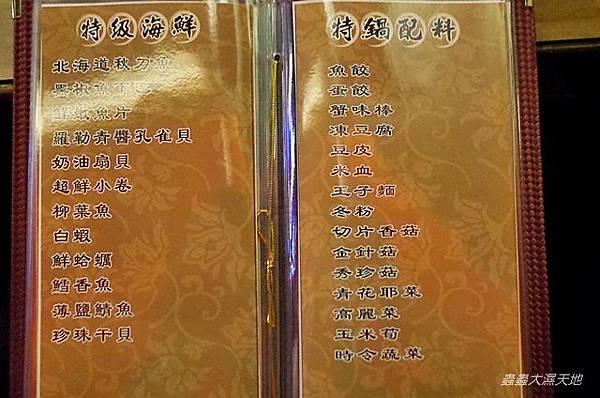 特级海鮮
北海道秋刀魚
黑椒魚下巴
鮮嫩魚片
羅勒青醬孔雀貝
奶油扇貝
超鮮小卷
柳葉魚
白蝦
鮮蛤蠣
鱈香魚
薄鹽鯖魚
珍珠干貝
特鍋配料
魚餃
蛋餃
蟹味棒
凍豆腐
豆皮
米血
王子麵
冬粉
切片香菇
金針菇
秀珍菇
青花耶菜
高麗菜
玉米筍
時令蔬菜
蟲蟲大濕天地